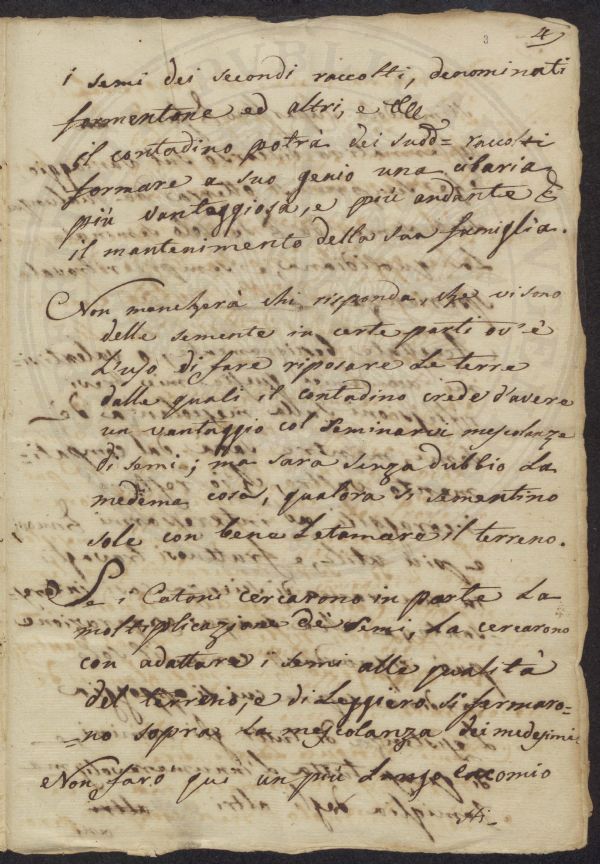 4
3
i semi dei secondi raccolti, denominati
formentone ed altri, e
il contadino potrà dei sudd= raccolti
formare a suo genio una cibaria
più vantaggiosa, e più andante
il mantenimento della sua famiglia.
Non mancherà chi risponda, che vi sono
delle semente in certe parti ov'è
L'uso di fare riposare Le terre
dalle quali il contadino crede d'avere
un vantaggio col Seminarvi mescolanze
di semi; ma sarà senza dubbio La
medema cosa, qualora si sementino
sole con bene Letamare il terreno.
Se i Catoni cercarono in parte La
moltiplicazione de Semi, La cercarono
con adattare i semi alle qualità
del terreno, e di Leggiero si fermaro=
=no sopra La mescolanza dei medesimi
Non farò qui un più Lungo Encomio